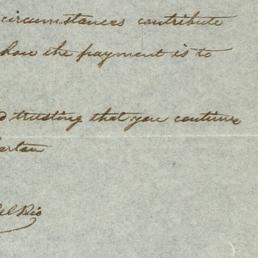 circumstances contribute
how the payment is to
trusting that you continue
del Rio